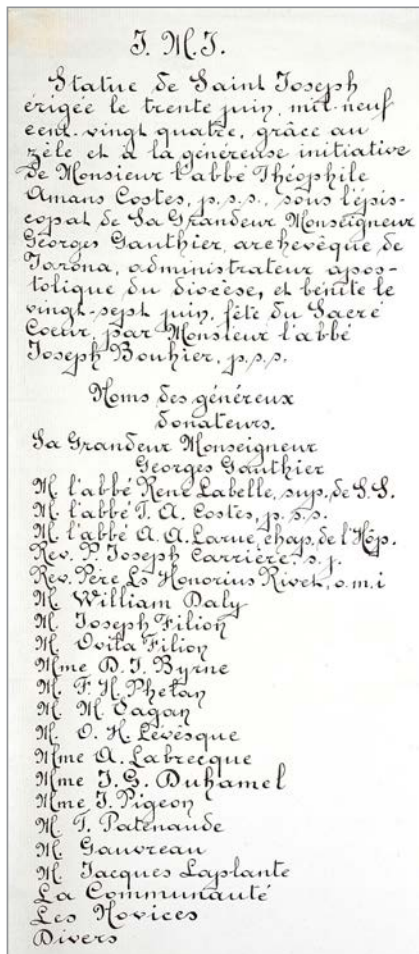 J. M. J.
Statue de Saint Joseph
érigée le trente juin, mil-neuf
cent-vingt quatre, grâce au
zèle et à la généreuse initiative
de Monsieur l'abbé Théophile
Amans Costes, p.s.s., sous l'épis-
copat de Sa Grandeur Monseigneur
Georges Gauthier, archevêque de
Tarona, administrateur apos-
tolique du diocèse, et bénite le
vingt-sept juin, fête du Sacré
Coeur, par Monsieur l'abbé
Joseph Bouhier, p.s.s.
Noms des généreux
donateurs.
Sa Grandeur Monseigneur
Georges Gauthier
M. l'abbé René Labelle, sup. de S.S.
M. l'abbé T. A. Costes, p.s.s.
M. l'abbé A. A. Larue, chap. de l'Hôp.
Rev. P. Joseph Carrière, s.j.
Rev. Père Ls Honorius Rivet, o.m.i
M. William Daly
M. Joseph Filion
M. Ovila Filion
Mme D. J. Byrne
M. F. H. Phelan
M. M. Vagan
M. O. H. Lévèsque
Mme A. Labrecque
Mme J. G. Duhamel
Mme J. Pigeon
M. T. Patenaude
M. Gauvreau
M. Jacques Laplante
La Communauté
Les Novices
Divers